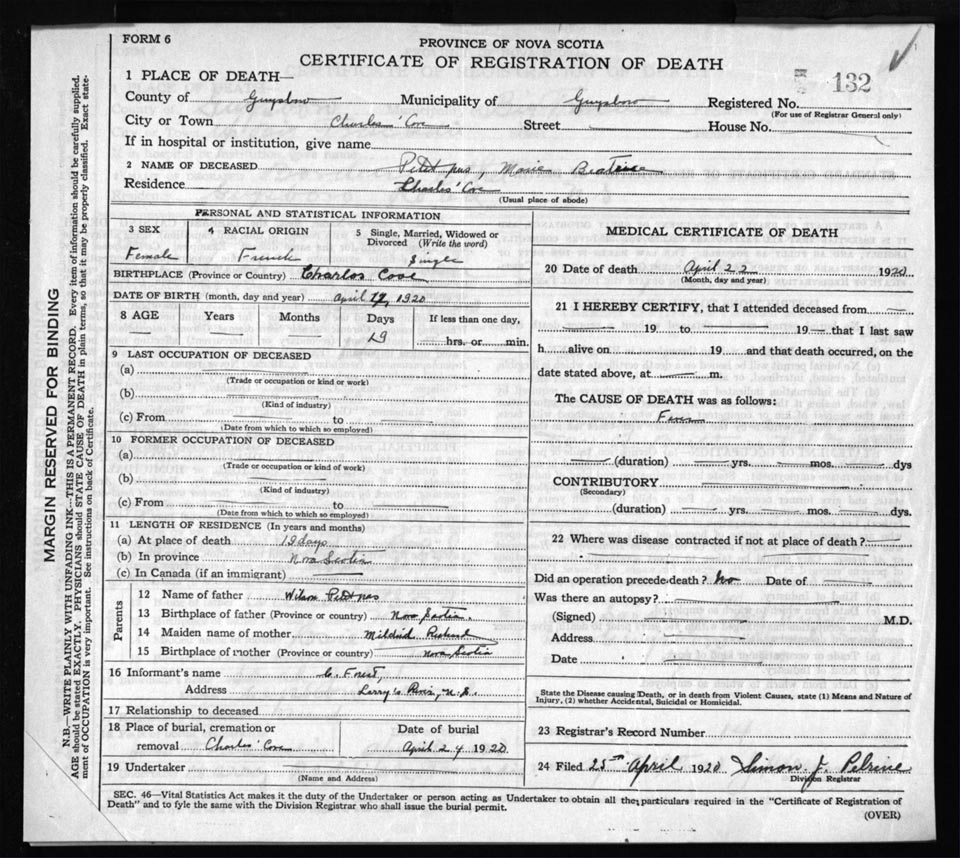 FORM 6
PROVINCE OF NOVA SCOTIA
CERTIFICATE OF REGISTRATION OF DEATH
132
1 PLACE OF DEATH—
County of Guysboro Municipality of Guysboro Registered No.
(For use of Registrar General only)
City or Town Charles' Cove Street House No.
If in hospital or institution, give name
2 NAME OF DECEASED Petit pas, Marie
Residence Charles' Cove
(Usual place of abode)
PERSONAL AND STATISTICAL INFORMATION
3 SEX 4 RACIAL ORIGIN 5 Single, Married, Widowed or Divorced (Write the word)
Female French Single
BIRTHPLACE (Province or Country) Charlos Cove
DATE OF BIRTH (month, day and year) april 1920
8 AGE Years Months Days If less than one day,
19 hrs. or min.
9 LAST OCCUPATION OF DECEASED
(a)
(Trade or occupation or kind or work)
(b)
(Kind of industry)
(c) From to
(Date from which to which so employed)
10 FORMER OCCUPATION OF DECEASED
(a)
(Trade or occupation or kind of work)
(b)
(Kind of industry)
(c) From to
(Date from which to which so employed)
11 LENGTH OF RESIDENCE (In years and months)
(a) At place of death 19 days
(b) In province Nova Scotia
(c) In Canada (if an immigrant)
Parents
12 Name of father Wilson Petitpas
13 Birthplace of father (Province or country) Nova Scotia
14 Maiden name of mother Mildred
15 Birthplace of mother (Province or country) Nova Scotia
16 Informant's name
Address Larry's River, N.S.
17 Relationship to deceased
18 Place of burial, cremation or Date of burial
removal Charles' Cove April 24 1920
19 Undertaker
(Name and Address)
MEDICAL CERTIFICATE OF DEATH
20 Date of death April 22 1920
(Month, day and year)
21 I HEREBY CERTIFY, that I attended deceased from
19 to 19 that I last saw
h alive on 19 and that death occurred, on the
date stated above, at m.
The CAUSE OF DEATH was as follows:
(duration) yrs. mos. dys
CONTRIBUTORY
(Secondary)
(duration) yrs. mos. dys.
22 Where was disease contracted if not at place of death?
Did an operation precede death? no Date of
Was there an autopsy?
(Signed) M.D.
Address
Date
State the Disease causing Death, or in death from Violent Causes, state (1) Means and Nature of
Injury, (2) whether Accidental, Suicidal or Homicidal.
23 Registrar's Record Number
24 Filed 25th April 1920 Simon J. Pelrine
Division Registrar
SEC. 46—Vital Statistics Act makes it the duty of the Undertaker or person acting as Undertaker to obtain all the particulars required in the "Certificate of Registration of
Death" and to fyle the same with the Division Registrar who shall issue the burial permit.
(OVER)
MARGIN RESERVED FOR BINDING
N.B.—WRITE PLAINLY WITH UNFADING INK—THIS IS A PERMANENT RECORD. Every item of information should be carefully supplied.
AGE should be stated EXACTLY. PHYSICIANS should STATE CAUSE OF DEATH in plain terms, so that it may be properly classified. Exact state-
ment of OCCUPATION is very important. See instructions on back of Certificate.